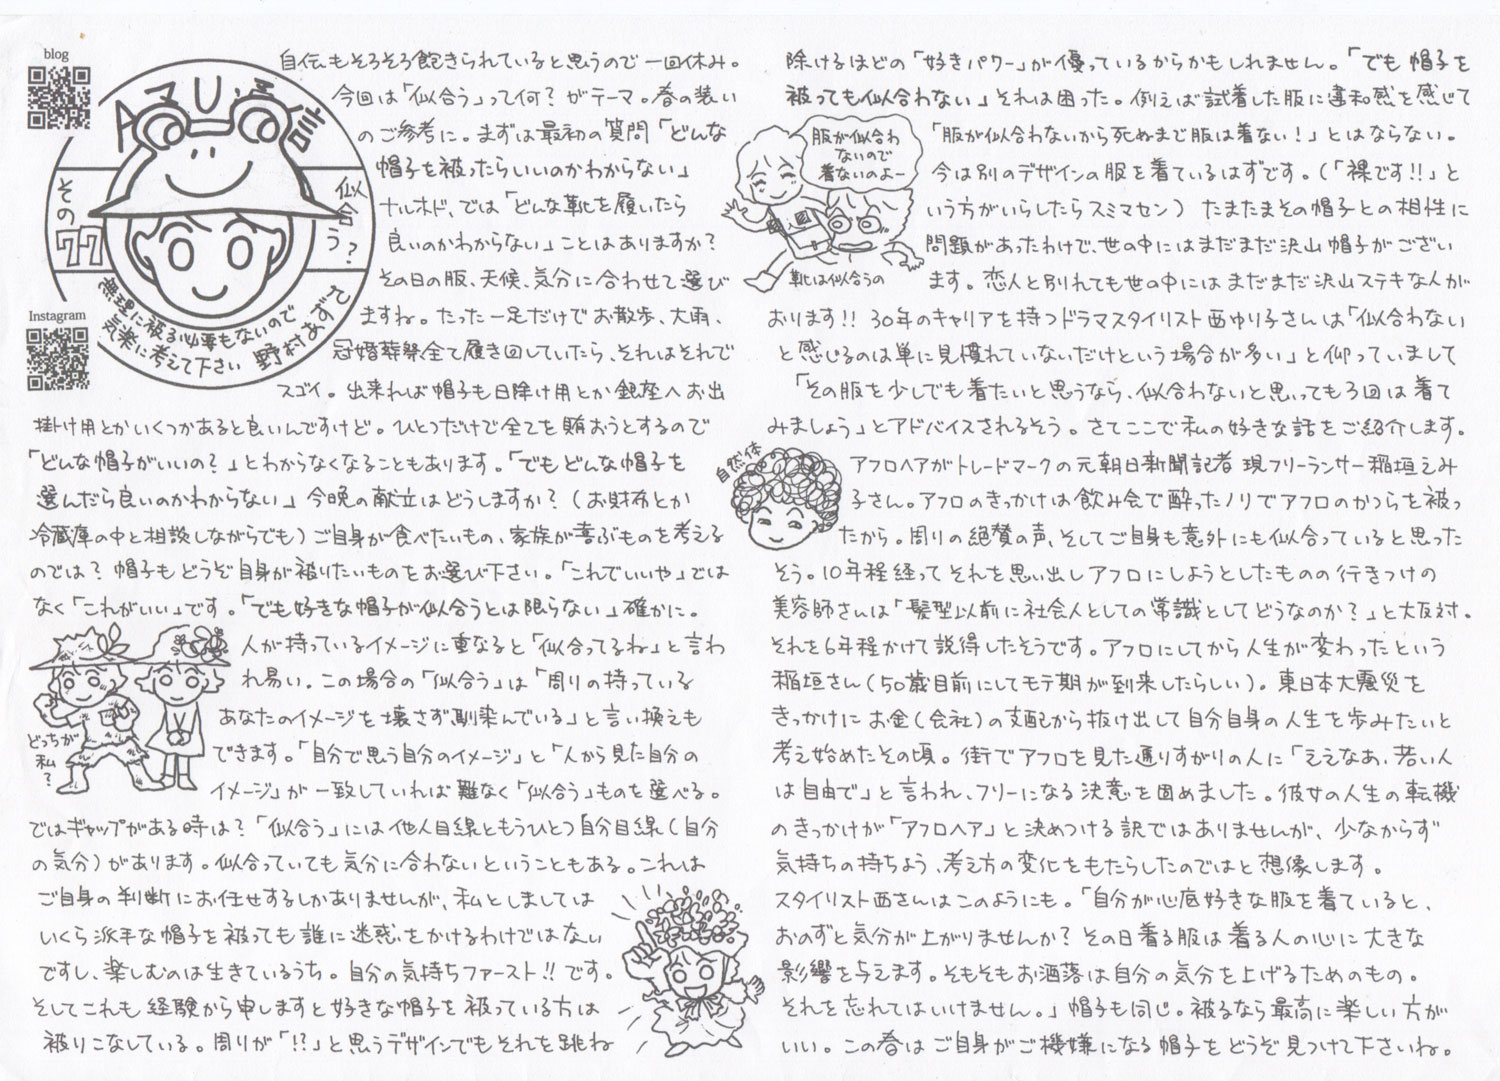 blog
アマリ通信
その77
似合う?
無理に被る必要もないので
気楽に考えて下さい 野村あずさ
Instagram
自伝もそろそろ飽きられていると思うので一回休み。
今回は「似合う」って何?がテーマ。春の装い
のご参考に。まずは最初の質問「どんな
帽子を被ったらいいのかわからない」
ナルホド、では「どんな靴を履いたら
良いのかわからない」ことはありますか?
その日の服、天候、気分に合わせて選び
ますね。たった一足だけでお散歩、大雨、
冠婚葬祭全て履き回していたら、それはそれで
スゴイ。出来れば帽子も日除け用とか銀座へお出
掛け用とかいくつかあると良いんですけど。ひとつだけで全てを賄おうとするので
「どんな帽子がいいの?」とわからなくなることもあります。「でもどんな帽子を
選んだら良いのかわからない」今晩の献立はどうしますか?(お財布とか
冷蔵庫の中と相談しながらでも)ご自身が食べたいもの、家族が喜ぶものを考える
のでは?帽子もどうぞ自身が被りたいものをお選び下さい。「これでいいや」では
なく「これがいい」です。「でも好きな帽子が似合うとは限らない」確かに。
人が持っているイメージに重なると「似合ってるね」と言わ
れ易い。この場合の「似合う」は「周りの持っている
あなたのイメージを壊さず馴染んでいる」と言い換えも
できます。「自分で思う自分のイメージ」と「人から見た自分の
イメージ」が一致していれば難なく「似合う」ものを選べる。
どっちが
私?
ではギャップがある時は?「似合う」には他人目線ともうひとつ自分目線(自分
の気分)があります。似合っていても気分に合わないということもある。これは
ご自身の判断にお任せするしかありませんが、私としましては
いくら派手な帽子を被っても誰に迷惑をかけるわけではない
ですし、楽しむのは生きているうち。自分の気持ちファースト!!です。
そしてこれも経験から申しますと好きな帽子を被っている方は
被りこなしている。周りが「!?」と思うデザインでもそれを跳ね
除けるほどの「好きパワー」が優っているからかもしれません。「でも帽子を
被っても似合わない」それは困った。例えば試着した服に違和感を感じて
「服が似合わないから死ぬまで服は着ない!」とはならない。
今は別のデザインの服を着ているはずです。(「裸です!!」と
いう方がいらしたらスミマセン)たまたまその帽子との相性に
問題があったわけで、世の中にはまだまだ沢山帽子がござい
ます。恋人と別れても世の中にはまだまだ沢山ステキな人が
服が似合わ
ないので
着ないのよー
靴は似合うの
おります!!30年のキャリアを持つドラマスタイリスト西ゆり子さんは「似合わない
と感じるのは単に見慣れていないだけという場合が多い」と仰っていまして
「その服を少しでも着たいと思うなら、似合わないと思っても3回は着て
みましょう」とアドバイスされるそう。さてここで私の好きな話をご紹介します。
自然体
アフロヘアがトレードマークの元朝日新聞記者現フリーランサー稲垣えみ
子さん。アフロのきっかけは飲み会で酔ったノリでアフロのかつらを被っ
たから。周りの絶賛の声、そしてご自身も意外にも似合っていると思った
そう。10年程経ってそれを思い出しアフロにしようとしたものの行きつけの
美容師さんは「髪型以前に社会人としての常識としてどうなのか?」と大反対。
それを6年程かけて説得したそうです。アフロにしてから人生が変わったという
稲垣さん(50歳目前にしてモテ期が到来したらしい)。東日本大震災を
きっかけにお金(会社)の支配から抜け出して自分自身の人生を歩みたいと
考え始めたその頃。街でアフロを見た通りすがりの人に「ええなあ、若い人
は自由で」と言われ、フリーになる決意を固めました。彼女の人生の転機
のきっかけが「アフロヘア」と決めつける訳ではありませんが、少なからず
気持ちの持ちよう、考え方の変化をもたらしたのではと想像します。
スタイリスト西さんはこのようにも。「自分が心底好きな服を着ていると、
おのずと気分が上がりませんか?その日着る服は着る人の心に大きな
影響を与えます。そもそもお洒落は自分の気分を上げるためのもの。
それを忘れてはいけません。」帽子も同じ。被るなら最高に楽しい方が
いい。この春はご自身がご機嫌になる帽子をどうぞ見つけて下さいね。